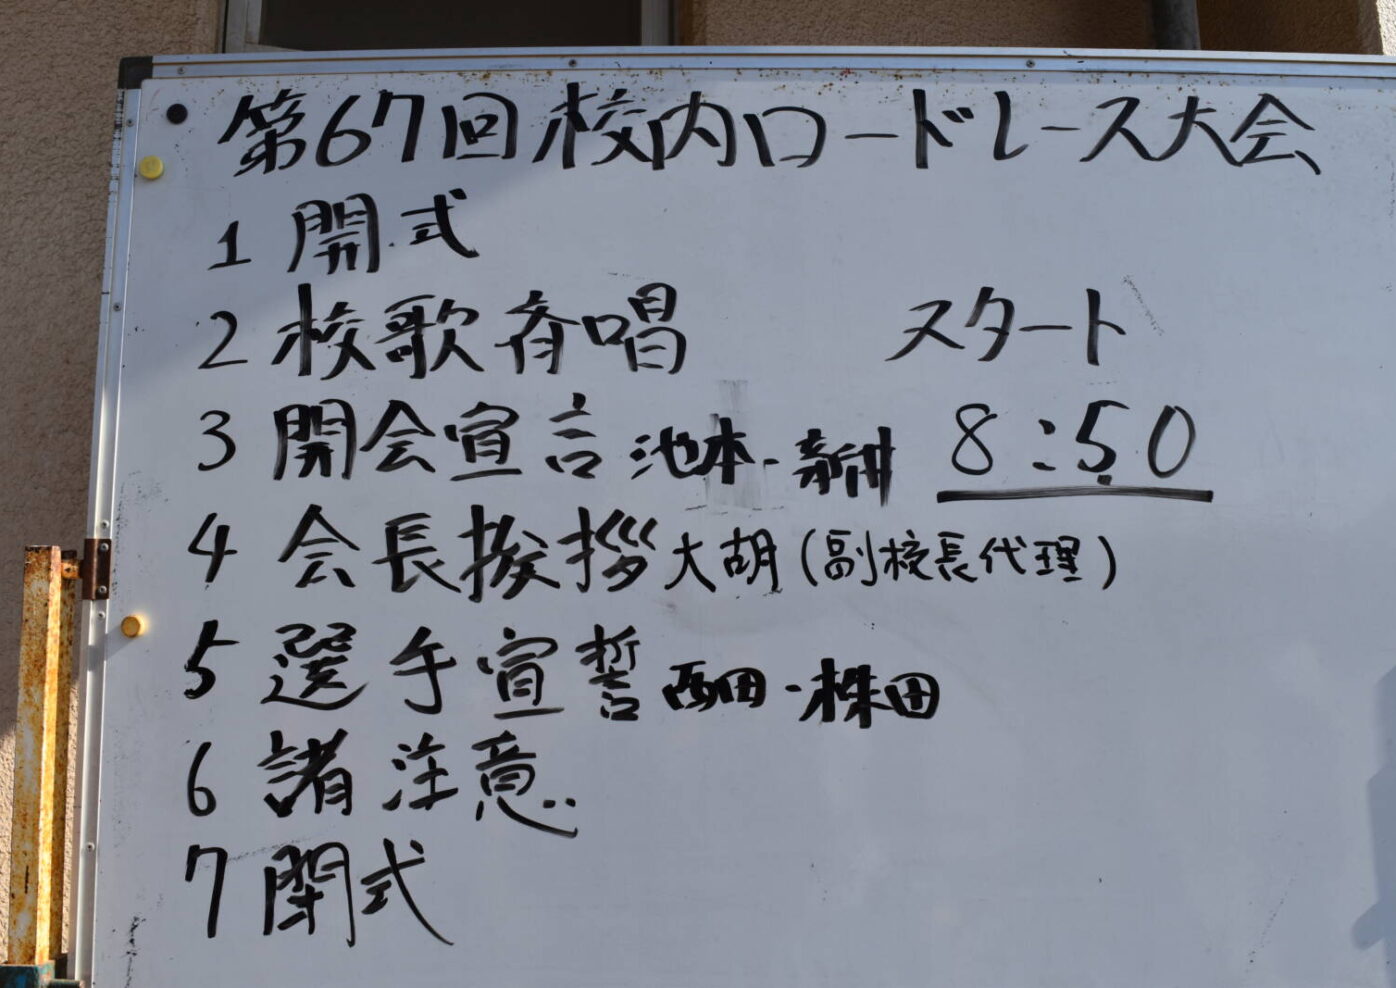 第67回校内ロードレース大会
1 開式
2 校歌斉唱
3 開会宣言 池本・新井
4 会長挨拶 大胡(副校長代理)
5 選手宣誓 西田・株田
6 諸注意
7 閉式
スタート
8:50